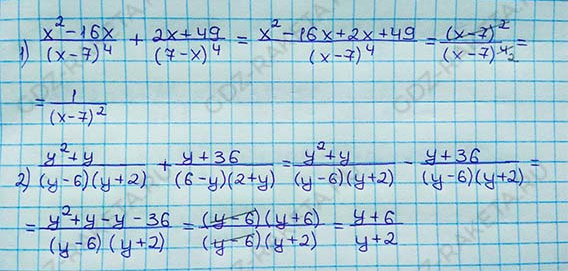 1) (x²-16x)/(x-7)⁴ + (2x+49)/(7-x)⁴ = (x²-16x+2x+49)/(x-7)⁴ = (x-7)²/(x-7)⁴ ₂ =
= 1/(x-7)²
2) (y²+y)/((y-6)(y+2)) + (y+36)/((6-y)(2+y)) = (y²+y)/((y-6)(y+2)) - (y+36)/((y-6)(y+2)) =
= (y²+y-y-36)/((y-6)(y+2)) = ((y-6)(y+6))/((y-6)(y+2)) = (y+6)/(y+2)